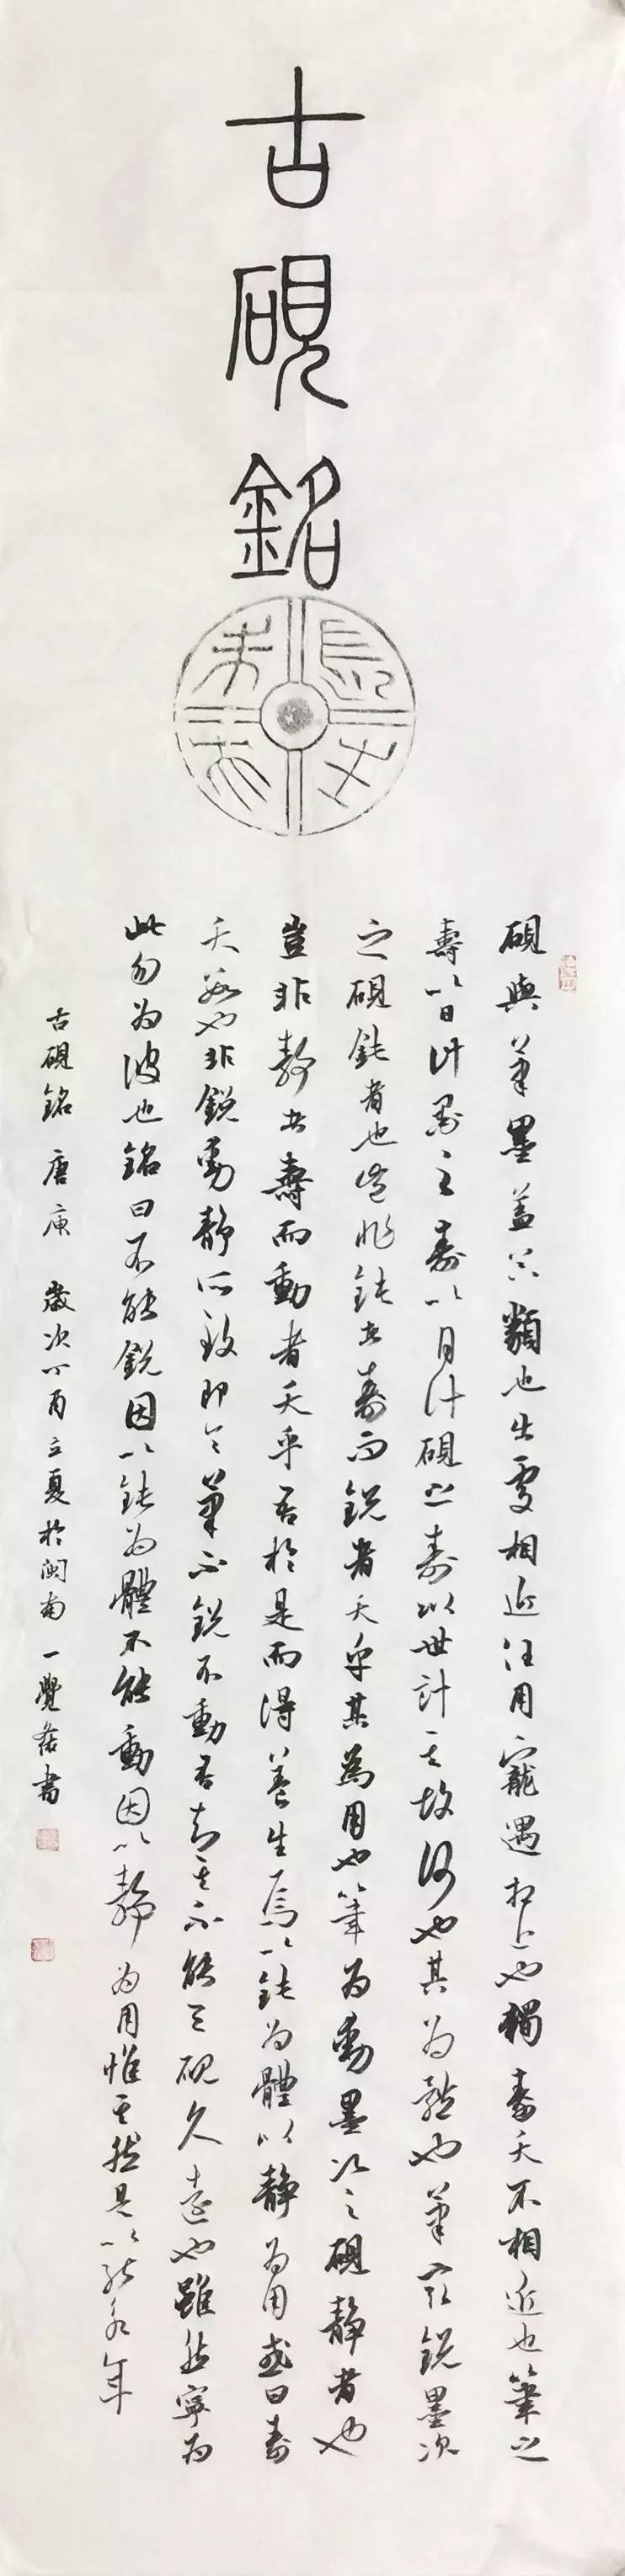 古硯銘
長生未央
硯與筆墨蓋氣類也出處相近任用寵遇相近也獨壽夭不相近也筆之
壽以日計墨之壽以月計硯之壽以世計其故何也其為體也筆最銳墨次
之硯鈍者也豈非鈍者壽而銳者夭乎其為用也筆最動墨次之硯靜者也
豈非靜者壽而動者夭乎吾於是而得養生焉以鈍為體以靜為用或曰壽
夭數也非銳動靜所致即令筆不銳不動吾知其不能與硯久遠也雖然寧為
此勿為彼也銘曰不能銳因以鈍為體不能動因以靜為用惟其然是以能永年
古硯銘 唐庚 歲次丁酉立夏於閩南一覺書